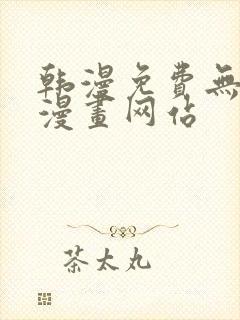 韩漫免費無
漫畫网佔
茶太丸